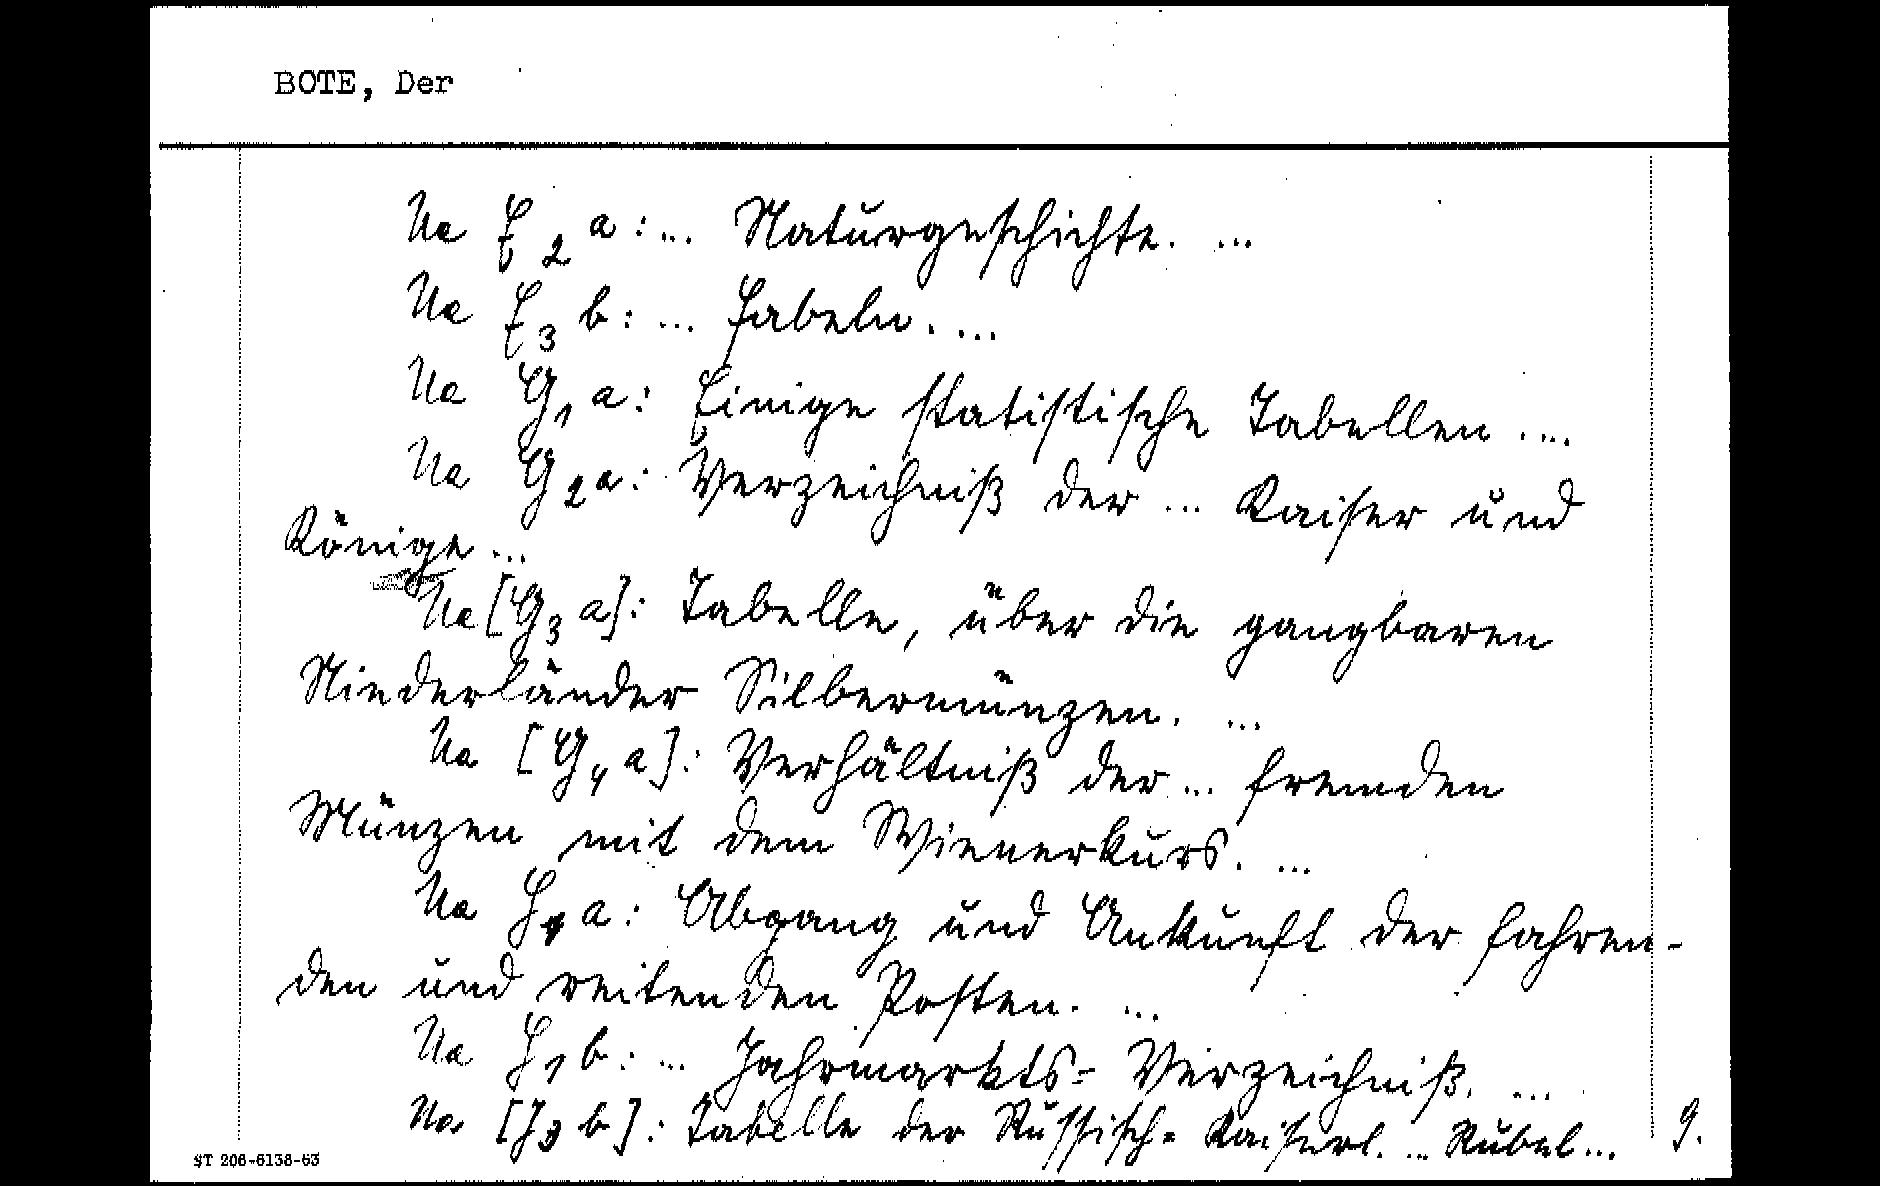 BOTE, Der
Ue F2a: ... Naturgeschichte. ...
Ue F3b: ... Fabeln. ...
Ue G1a: Einige statistische Tabellen ...
Ue G2a: Verzeichniß der ... Kaiser und
Könige ...
Ue [G3a]: Tabelle, über die gangbaren
Niederländer Silbermünzen. ...
Ue [G4a]: Verhältniß der ... fremden
Münzen mit dem Wienerkurs. ...
Ue H1a: Abgang und Ankunft der fahren-
den und reitenden Posten. ...
Ue H1b: ... Jahrmarkts= Verzeichniß. ...
Ue [J3b]: Tabelle der Russisch= Kaiserl. ... Rubel ...
9.
ST 206-6138-63